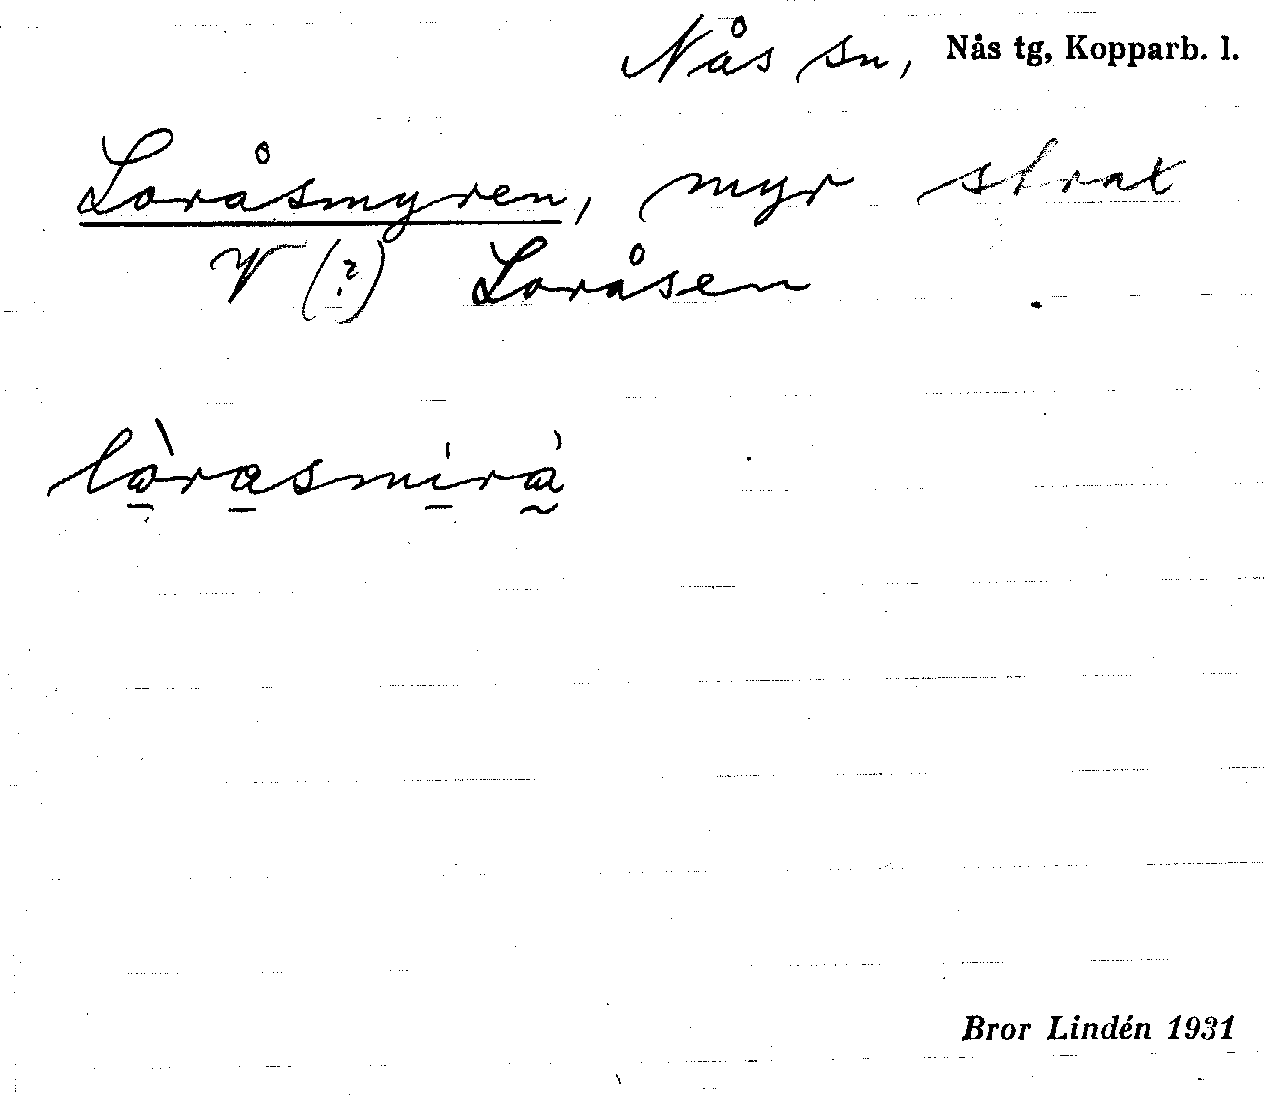 Nås sn, Nås tg, Kopparb. l.
Loråsmyren, myr strax
V (?) Loråsen
lòrasmirà
Bror Lindén 1931